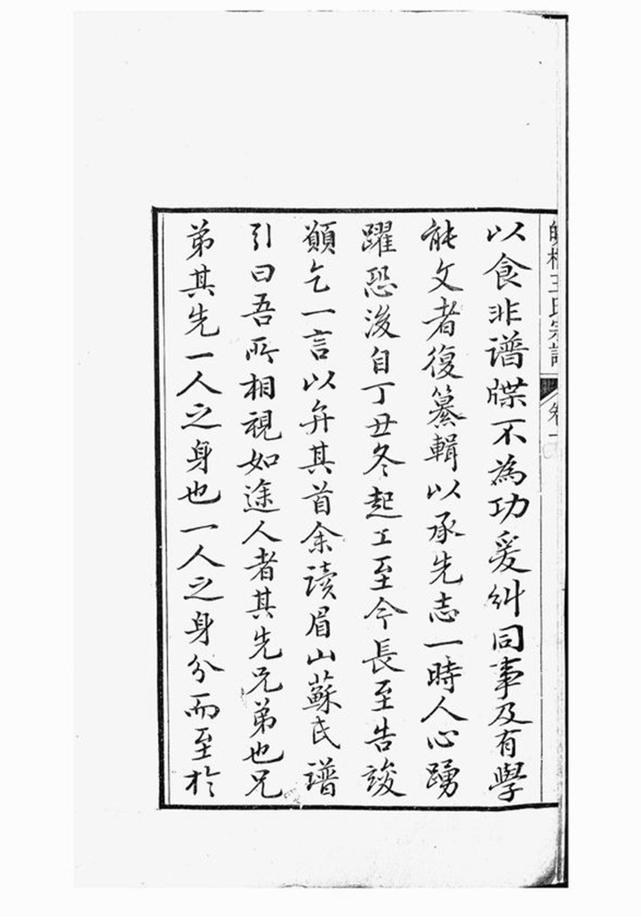 以食非谱牒不為功爰糾同事及有學
能文者復纂輯以承先志一時人心踴
躍恐後自丁丑冬起工至今長至告竣
顚乞一言以弁其首余读眉山蘇氏谱
引曰吾所相視如途人者其先兄弟也兄
弟其先一人之身也一人之身分而至於
王氏宗譜
卷一